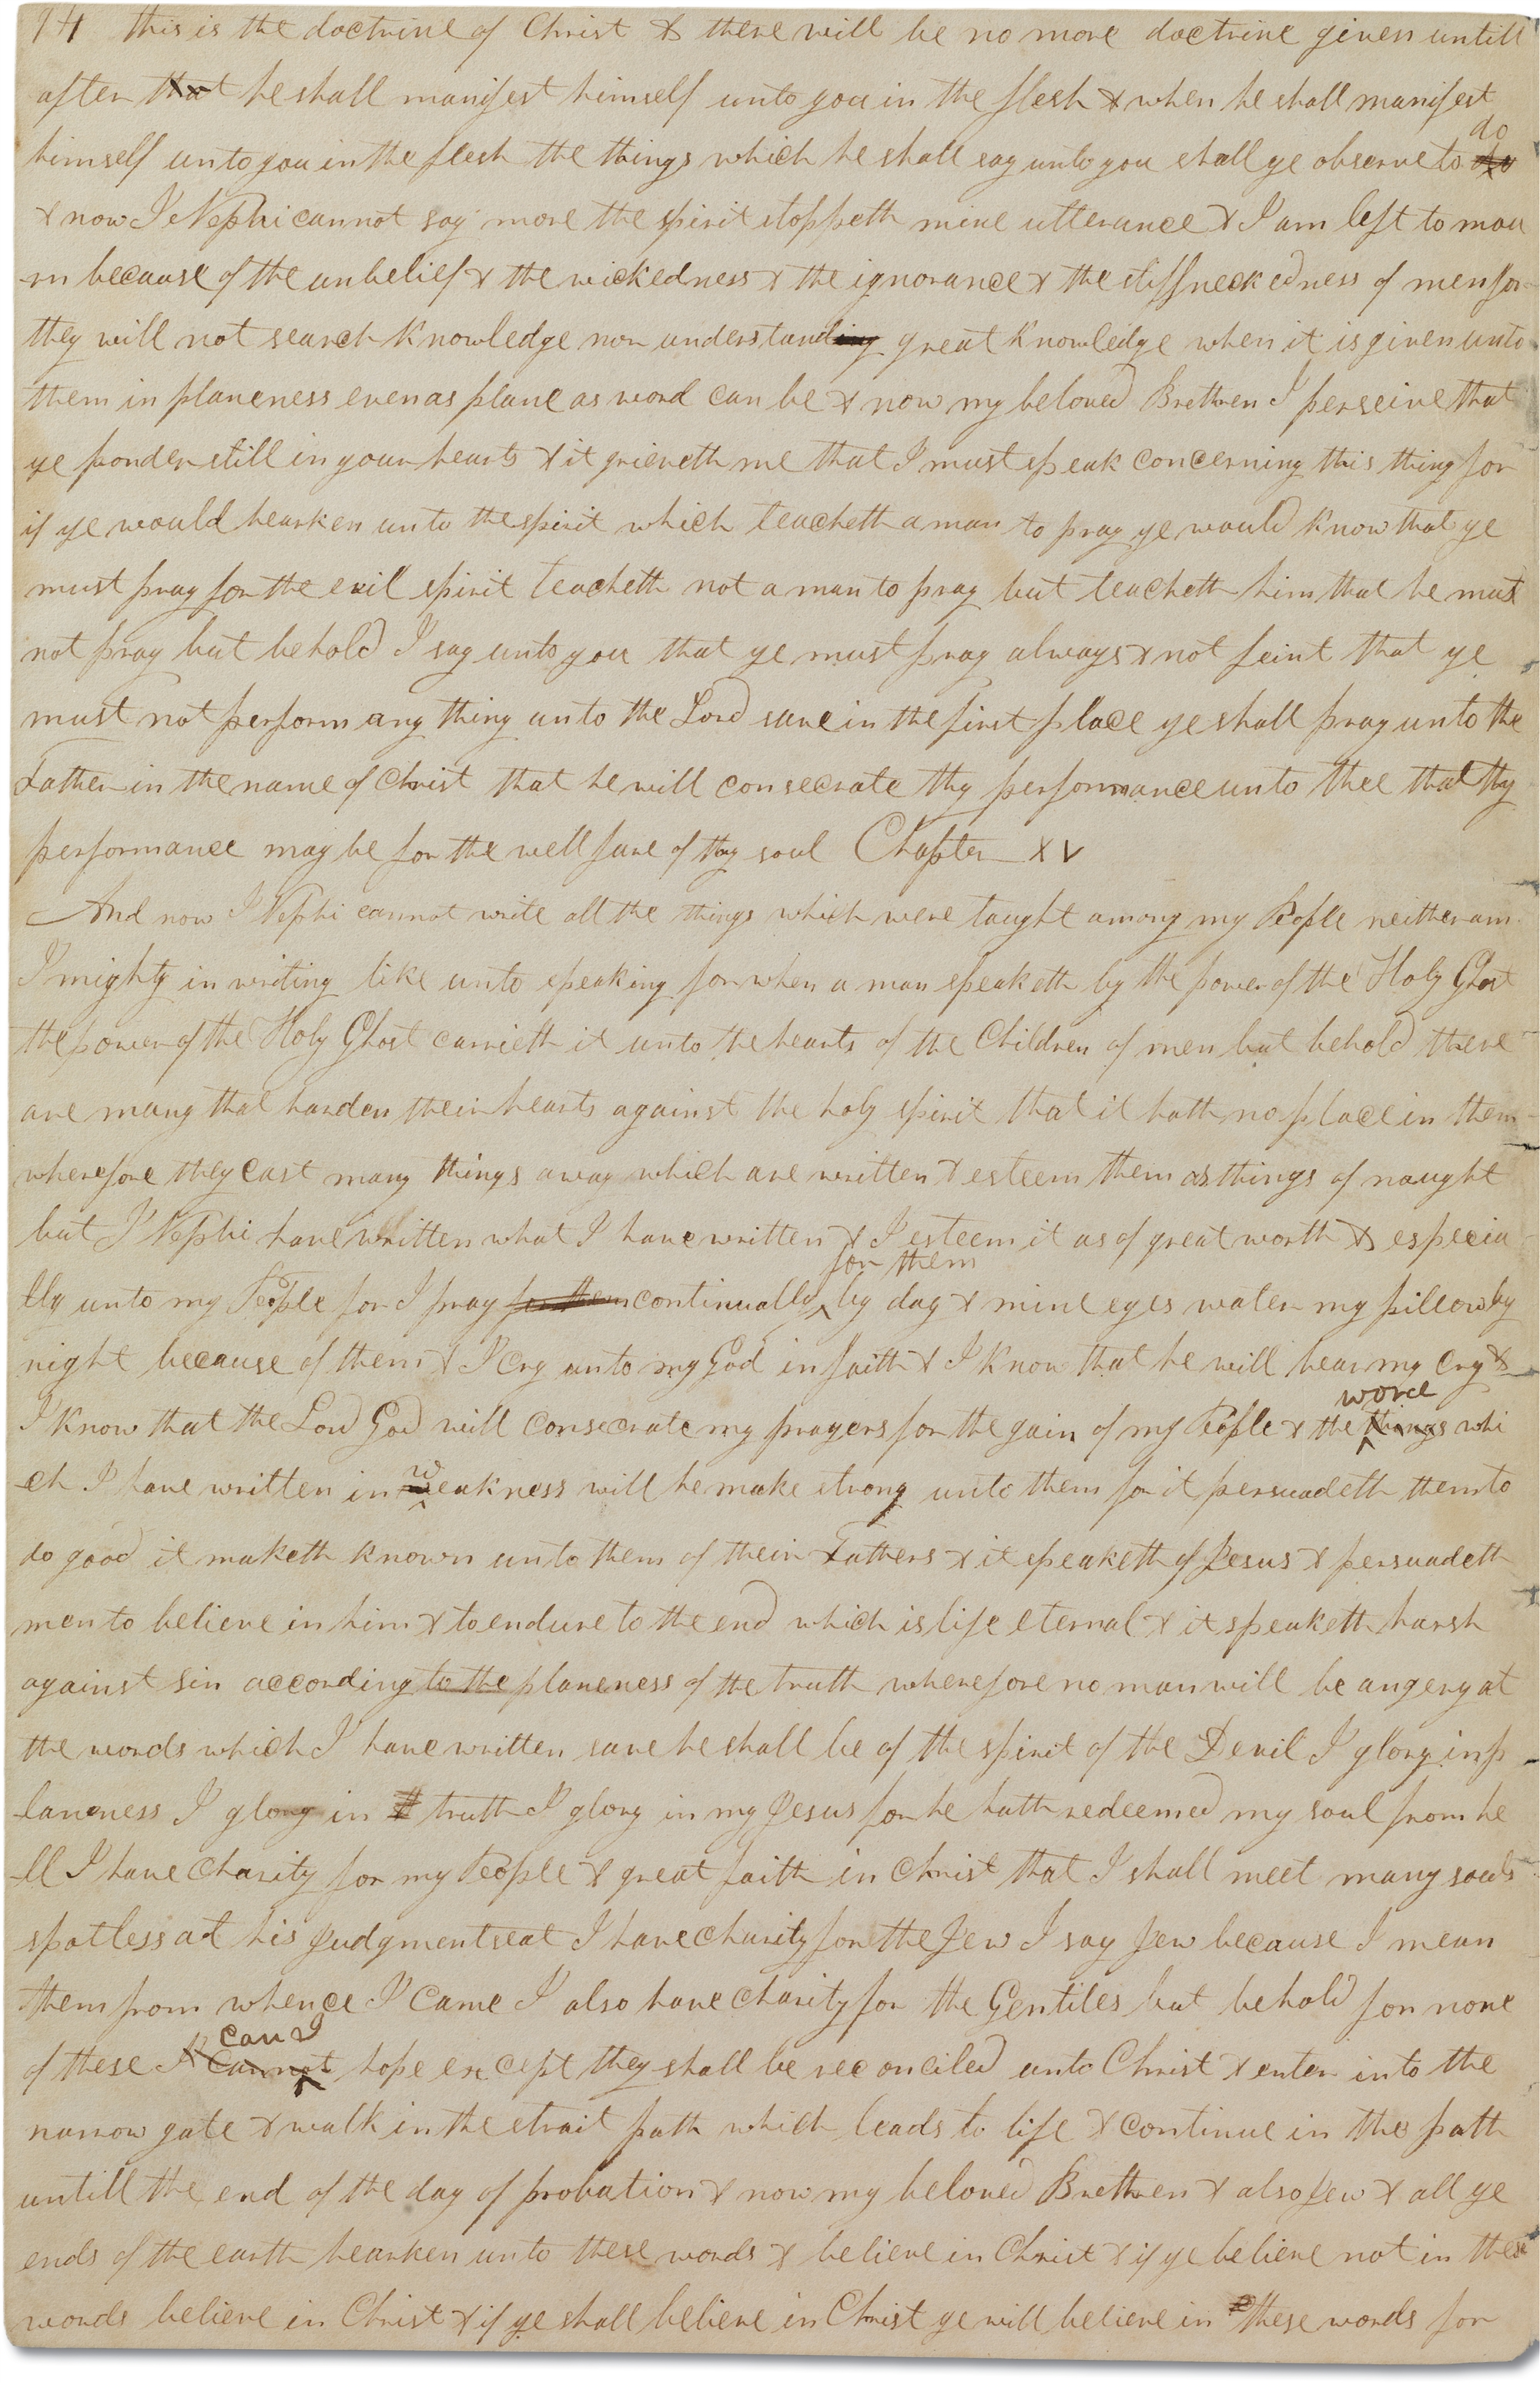 94 this is the doctrine of Christ & there will be no more doctrine given untill
after that he shall manifest himself unto you in the flesh & when he shall manifest
do
himself unto you in the flesh the things which he shall say unto you shall ye observe to
& now I Nephi cannot say more the spirit stoppeth mine utterance & I am left to mou
rn because of the unbelief & the wickedness & the ignorance & the stiffneckedness of men for
they will not search knowledge nor understanding great knowledge when it is given unto
them in planeness even as plane as word can be & now my beloved Brethren I perseive that
ye ponder still in your hearts & it grieveth me that I must speak concerning this thing for
if ye would hearken unto the spirit which teacheth a man to pray ye would know that ye
must pray for the evil spirit teacheth not a man to pray but teacheth him that he must
not pray but behold I say unto you that ye must pray always & not feint that ye
must not perform any thing unto the Lord save in the first place ye shall pray unto the
Father in the name of Christ that he will consecrate thy performance unto thee that thy
performance may be for the well fare of thy soul Chapter XV
And now I Nephi cannot write all the things which were taught among my People neither am
I mighty in writing like unto speaking for when a man speaketh by the power of the Holy Ghost
the power of the Holy Ghost carrieth it unto the hearts of the Children of men but behold there
are many that harden their hearts against the holy spirit that it hath no place in them
wherefore they cast many things away which are written & esteem them as things of naught
but I Nephi have written what I have written & I esteem it as of great worth & especia
for them
lly unto my People for I pray for them continually by day & mine eyes water my pillow by
night because of them & I cry unto my God in faith & I know that he will hear my cry &
worde
I know that the Lord God will consecrate my prayers for the gain of my People & the things whi
ch I have written in weakness will he make strong unto them for it persuadeth them to
do good it maketh known unto them of their Fathers & it speaketh of Jesus & persuadeth
men to believe in him & to endure to the end which is life eternal & it speaketh harsh
against sin according to the planeness of the truth wherefore no man will be angery at
the words which I have written save he shall be of the spirit of the Devil I glory in p
laneness I glory in truth I glory in my Jesus for he hath redeemed my soul from he
ll I have Charity for my People & great faith in Christ that I shall meet many souls
spotless at his Judgment seat I have Charity for the Jew I say Jew because I mean
them from whence I came I also have Charity for the Gentiles but behold for none
can I
of these I cannot hope except they shall be reconciled unto Christ & enter into the
narrow gate & walk in the strait path which leads to life & continue in the path
untill the end of the day of probation & now my beloved Brethren & also Jew & all ye
ends of the earth hearken unto these words & believe in Christ & if ye believe not in these
words believe in Christ & if ye shall believe in Christ ye will believe in these words for